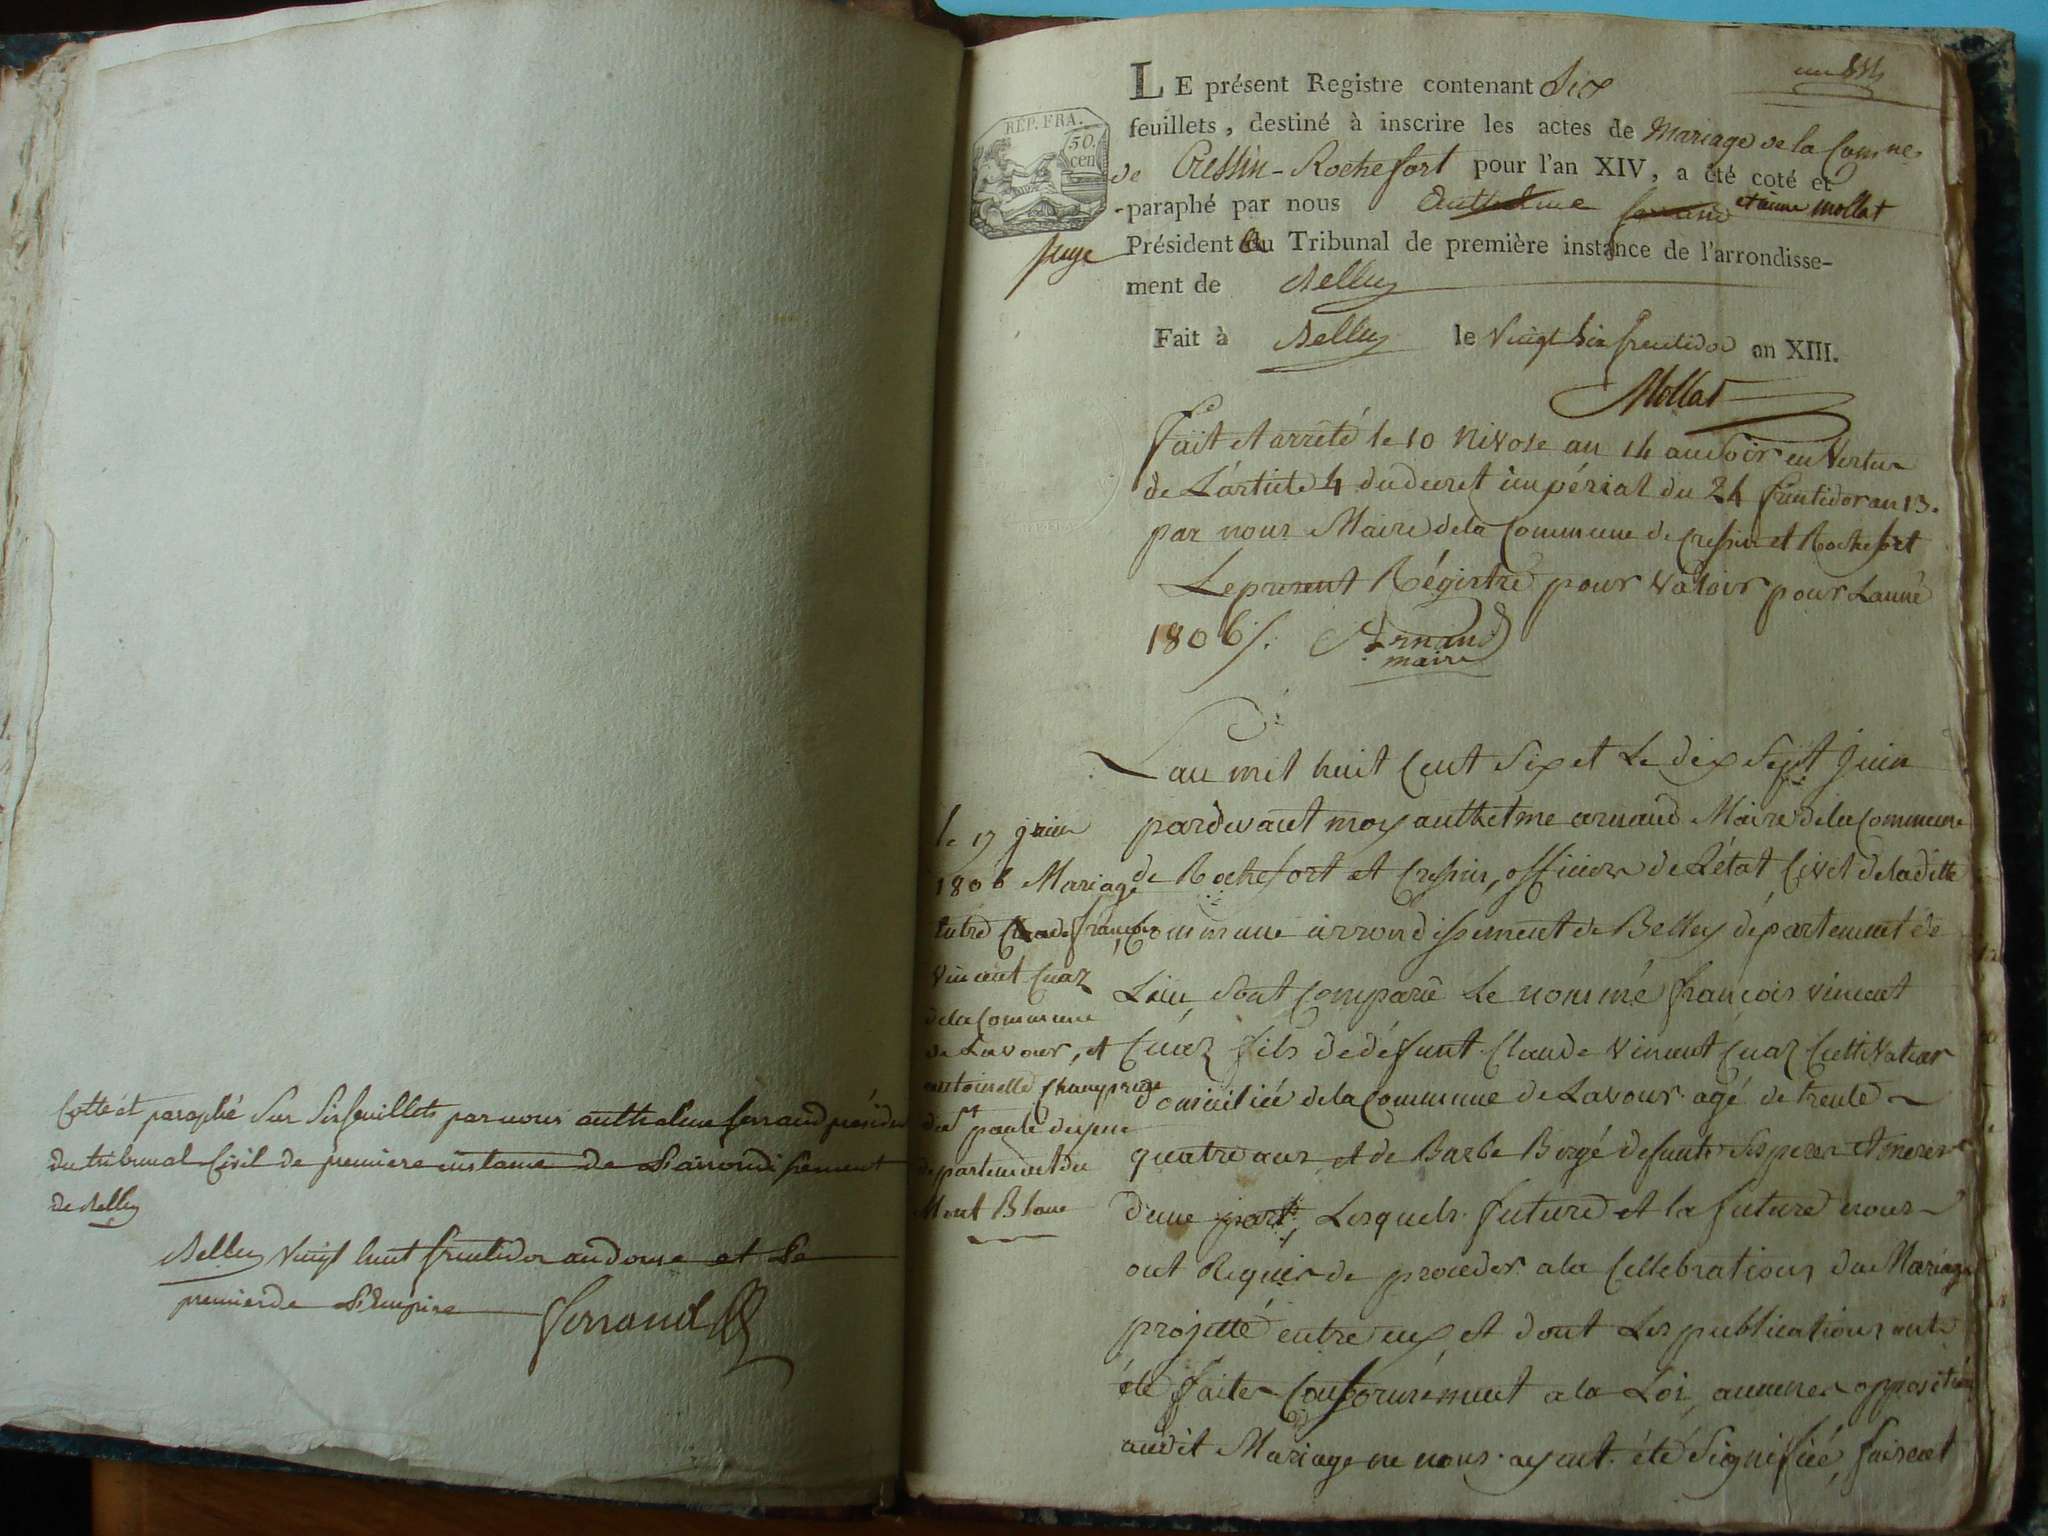 Cotté et paraphé Sur Six feuillets par nous anthelme ferrand présidt
du tribunal Civil de premiere instance de L'arrondissement
de Belley
Belley vingt huit fructidor an douze et Le
premier de L'Empire Ferrand
un
LE présent Registre contenant Six
feuillets, destiné à inscrire les actes de Mariage de la Comne
de Cressin-Rochefort pour l'an XIV, a été coté et
paraphé par nous Anthelme ferrand etienne mollat
juge Président du Tribunal de première instance de l'arrondisse-
ment de Belley
Fait à Belley le Vingt Six fructidor an XIII.
Mollat
REP. FRA.
50
cen
fait et arrêté le 10 Nivose an 14 au Soir en Vertu
de L'article 4 du decret impérial du 24 fructidor an 13.
par nous Maire de la Commune de Cressin et Rochefort
Le present Régistre pour valoir pour L'année
1806/. Arnaud
maire
L'an mil huit Cent Six et Le dix Sept Juin
pardevant moy anthelme arnaud Maire de la Commune
de Rochefort et Cressin, officier de L'état Civil de la ditte
Commune arrondissement de Belley département de
Lain, sont Comparu Le nommé françois vincent
Cuaz fils de défunt Claude Vincent Cuaz Cultivateur
domiciliée de la Commune de Lavour agé de trente
quatre ans, et de Barbe Bergé defunts Ses peres et meres
d'une part, Lesquels future et la future nous
ont Requis de proceder a la Cellebration du Mariage
projetté entre eux, et dont Les publications ont
été faites Conformément a la Loi, aucunes opposition
audit Mariage ne nous ayant été Signifiée, faisant
le 17 juin
1806 Mariage
Entre Claude françois
Vincent Cuaz
de la Commune
de Lavour, et
antoinette
departement du
Mont Blanc